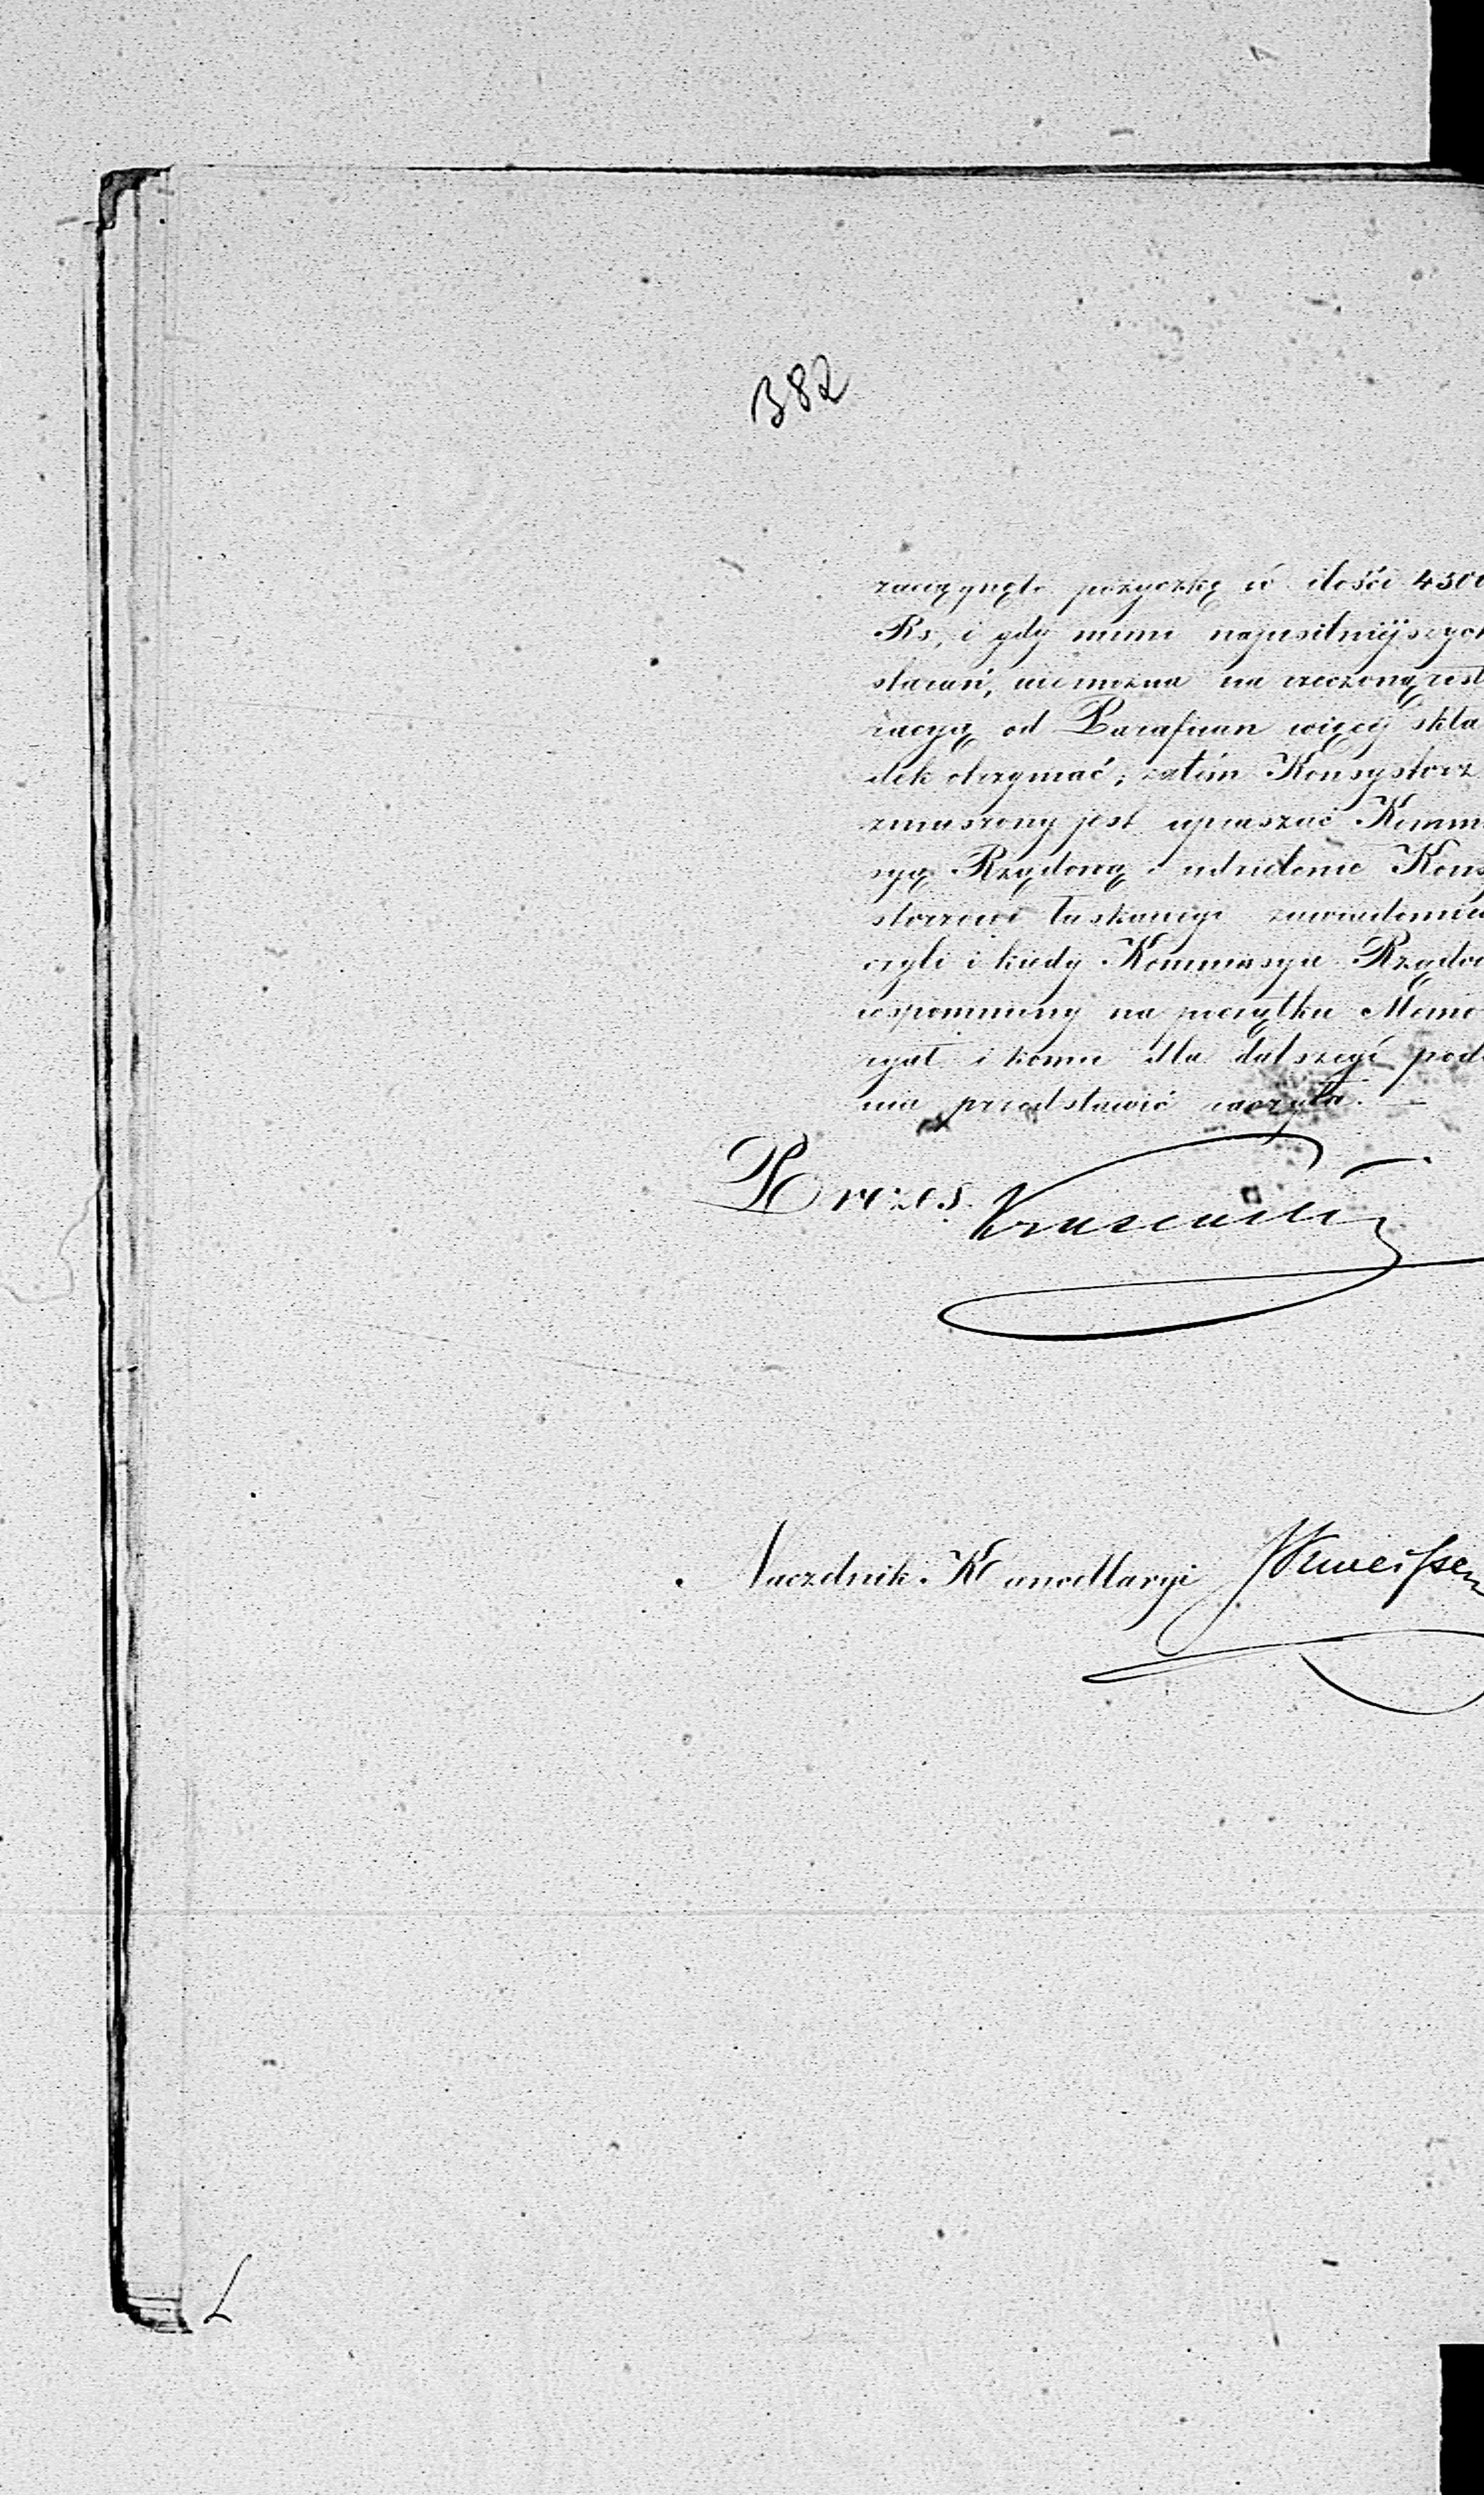 382
zaciągnęło pożyczkę w ilości 4300
Rs, i gdy mimo najusilniejszych
starań, niemożna na rzeczoną rest
racyą od Parafian więcéj skła
dek otrzymać; zatém Konsystorz
zmuszony jest upraszać Kommi
syą Rządową o udzielenie Konsy
storzowi łaskawego zawiadomie
czyli i kiedy Kommissya Rządo
wspomniony na początku Memo
ryał i komu dla dalszego pod
nia przedstawić raczyła. –
Prezes
Naczelnik Kancellaryi
L